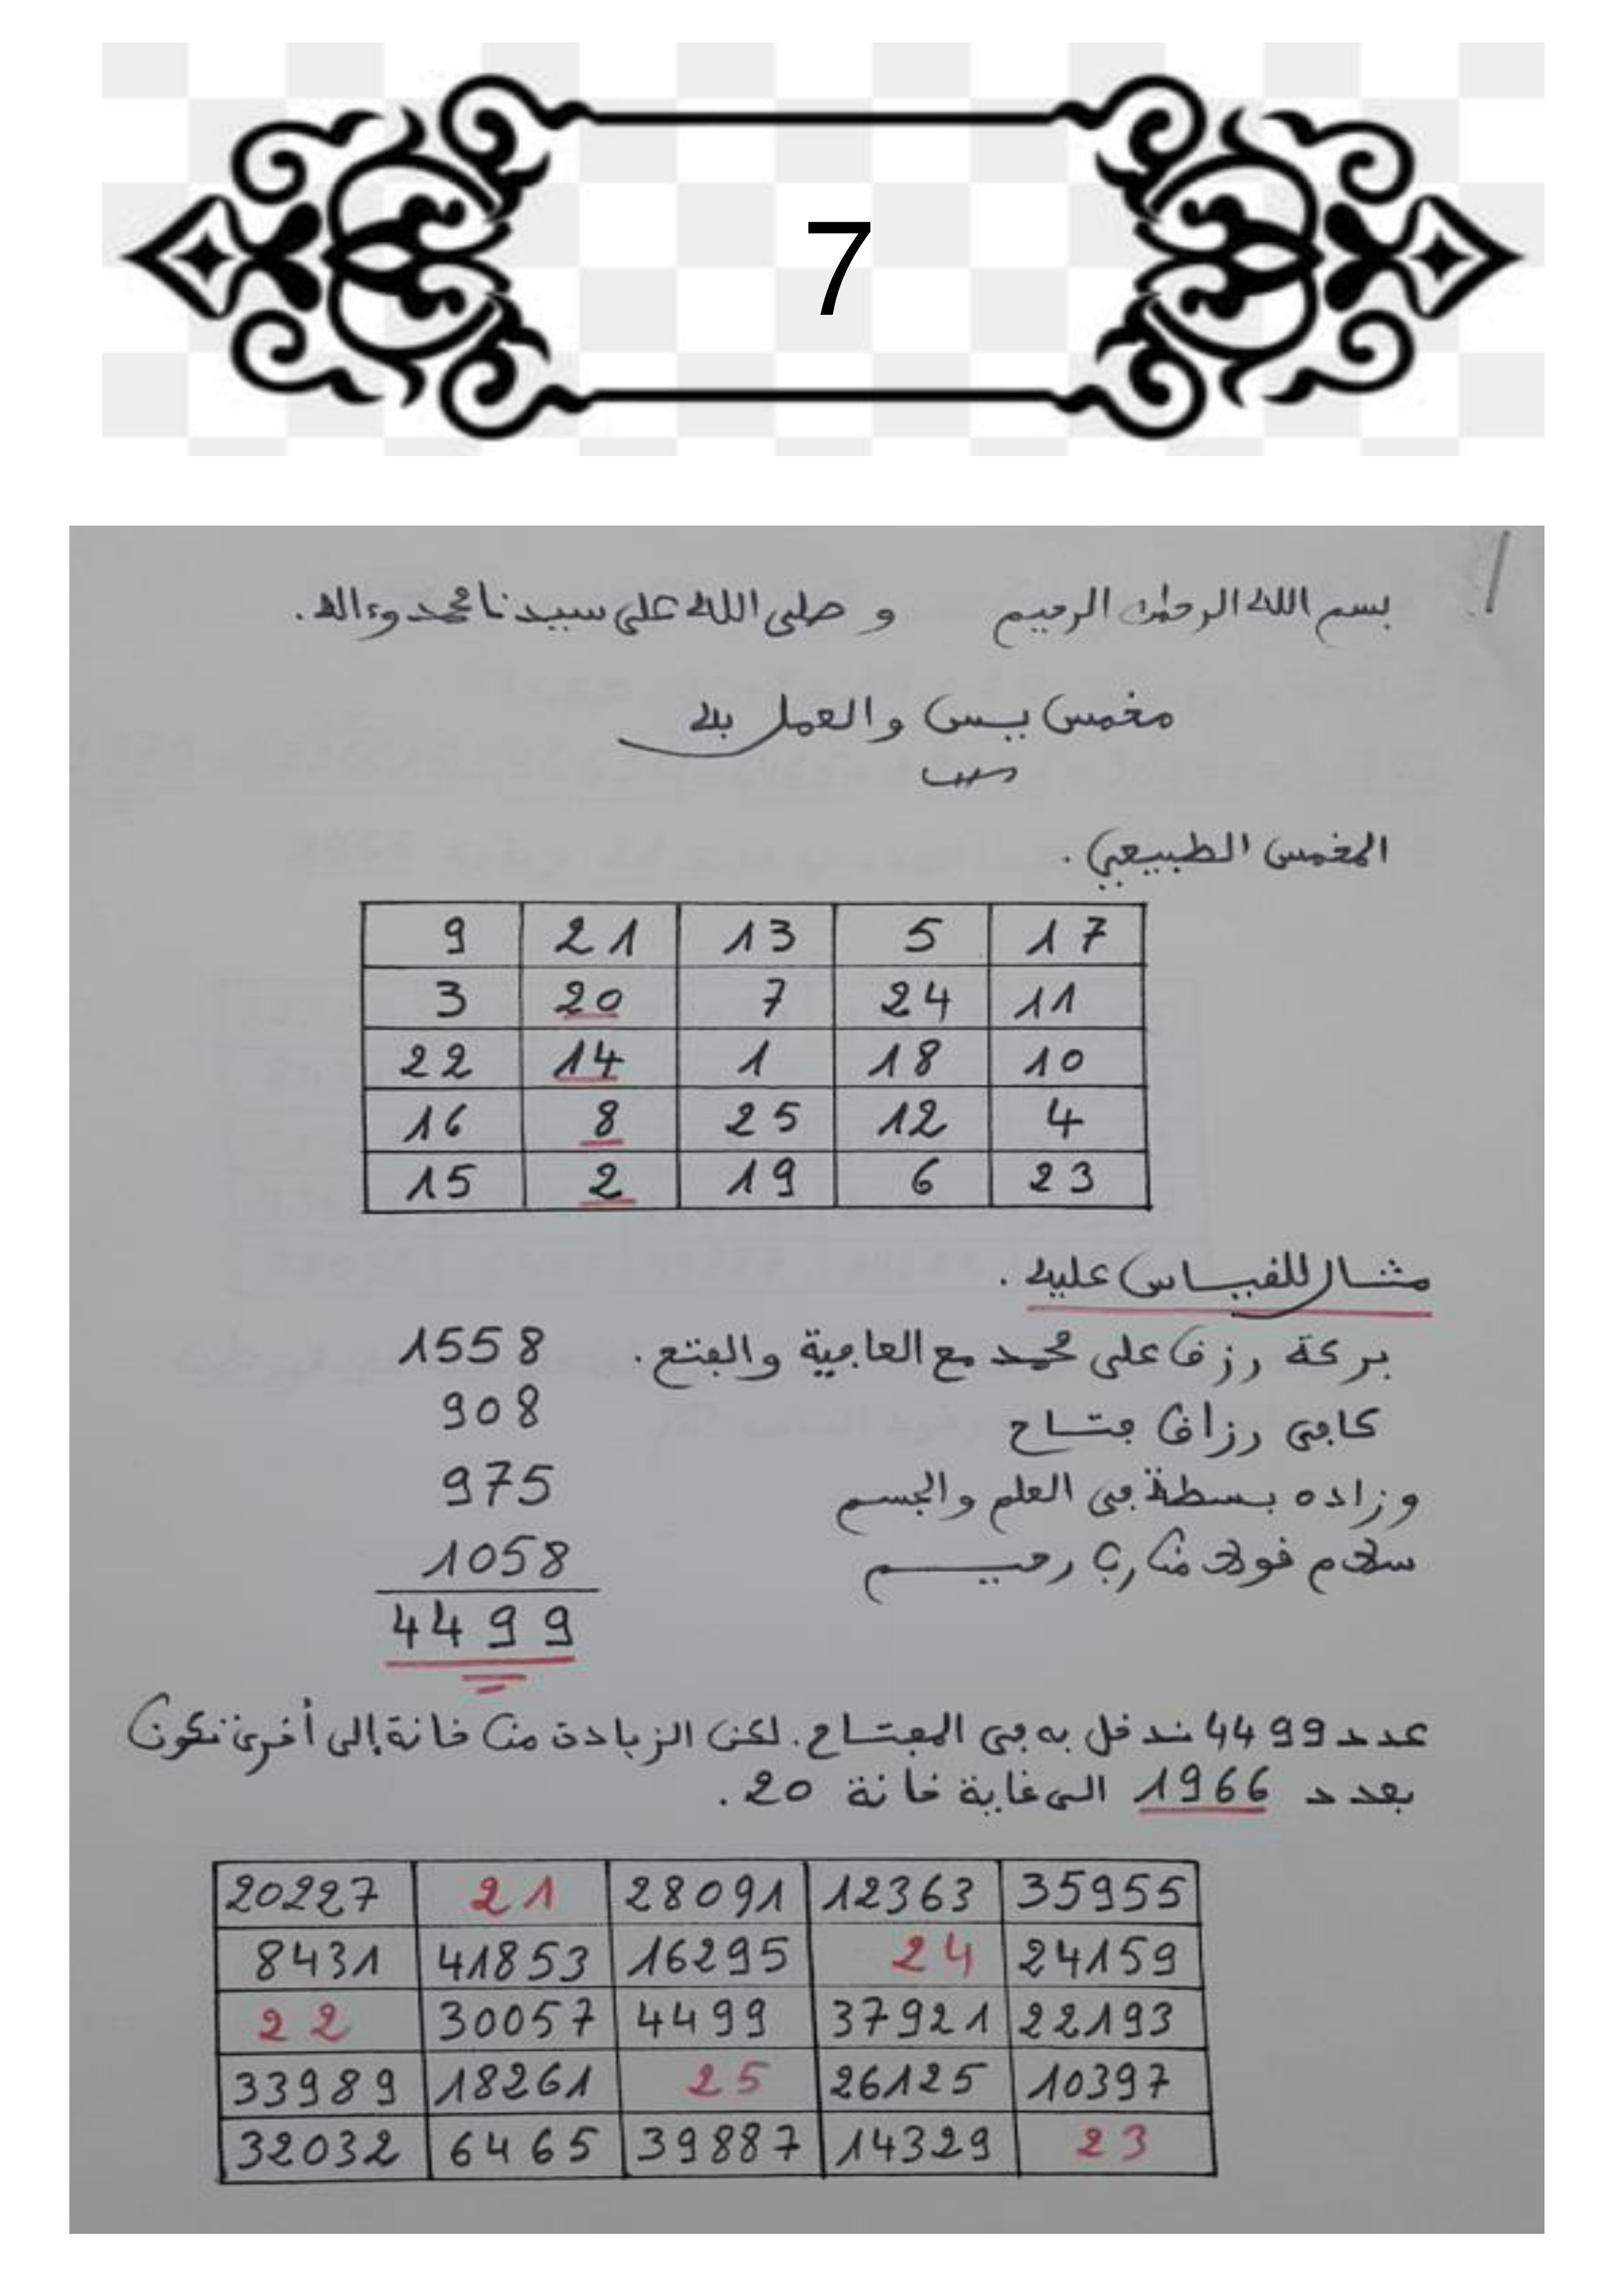 7
بسم الله الرحمن الرحيم و صلى الله على سيدنا محمد وءاله.
مخمس يس والعمل به
المخمس الطبيعي.
9 21 13 5 17
3 20 7 24 11
22 14 1 18 10
16 8 25 12 4
15 2 19 6 23
مثال للقياس عليه.
بركة رزق على محمد مع العافية والفتح. 1558
كافي رزاق فتاح 908
وزاده بسطة في العلم والجسم 975
سلام قولا من رب رحيم 1058
4499
عدد 4499 ندخل به في المفتاح. لكن الزيادة من خانة إلى أخرى تكون
بعدد 1966 الى غاية خانة 20.
20227 21 28091 12363 35955
8431 41853 16295 24 24159
22 30057 4499 37921 22193
33989 18261 25 26125 10397
32032 6465 39887 14329 23